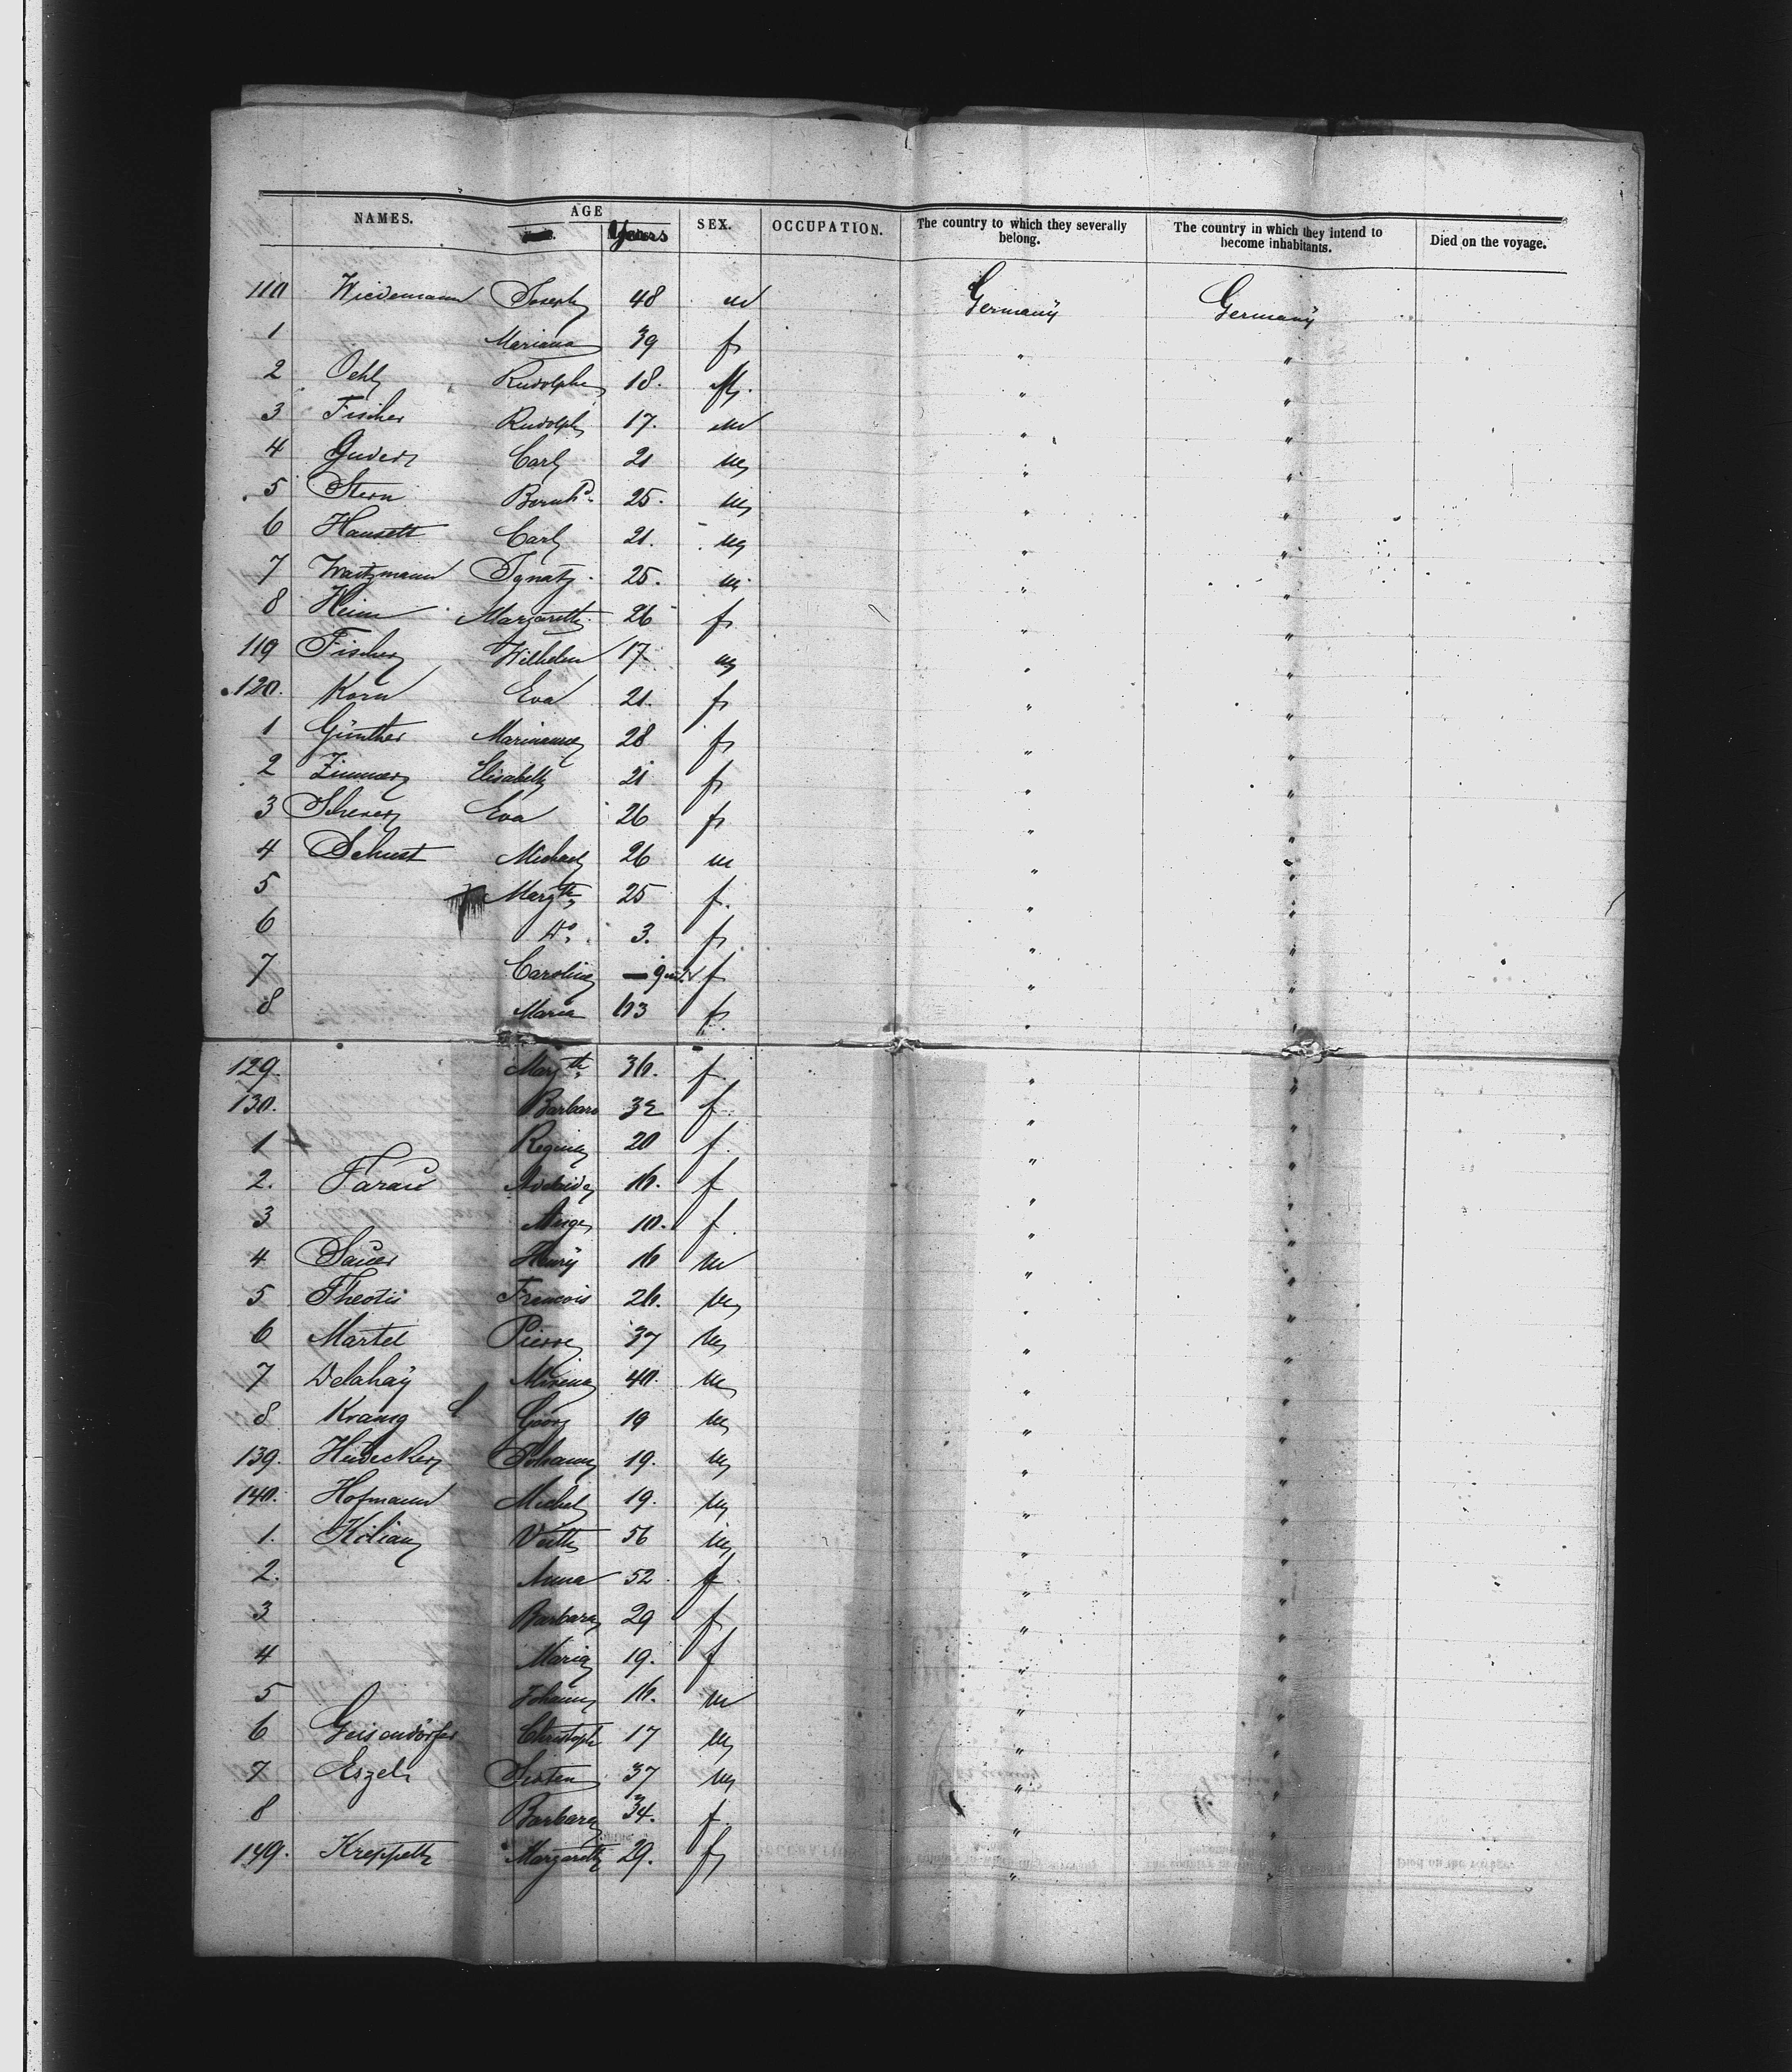 NAMES. AGE Years SEX. OCCUPATION. The country to which they severally belong. The country in which they intend to become inhabitants. Died on the voyage.
110 Wiedemann Joseph 48 m Germany Germany
1 Mariana 39 f " "
2 Oehl Rudolph 18. M. " "
3 Fischer Rudolph 17. m " "
4 Guder Carl 21 m " "
5 Stern Bernhd. 25. m " "
6 Hansett Carl 21. m " "
7 Waitzmann Ignatz 25. m " "
8 Heim Margareth 26 f " "
119 Fischer Wilhelm 17 m " "
120. Korn Eva 21. f " "
1 Günther Marianne 28 f " "
2 Zimmer Elisabeth 21 f " "
3 Scherer Eva 26 f " "
4 Schust Michael 26 m " "
5 Margth. 25 f. " "
6 Do. 3. f " "
7 Caroline 9 f " "
8 Maria 63 f " "
129. Margth. 36. f. " "
130. Barbara 32 f. " "
1 Regina 20 f. " "
2. Farau Adelaide 16. f " "
3 10. f. " "
4 Sauer Henry 16 m " "
5 Theotis Francois 26. m " "
6 Martel Pierre 37 m " "
7 Delahay 40. m " "
8 Kraus Georg 19 m " "
139. Heidecker Johann 19. m " "
140. Hofmann Michel 19. m " "
1. Kilian Veith 56 m " "
2. Anna 52. f " "
3 Barbara 29 f " "
4 Maria 19. f " "
5 Johann 16. m " "
6 Geisendörfer Christoph 17 m " "
7 Eszel 37 m " "
8 Barbara 34. f. " "
149. Kreppelt Margareth 29. f " "